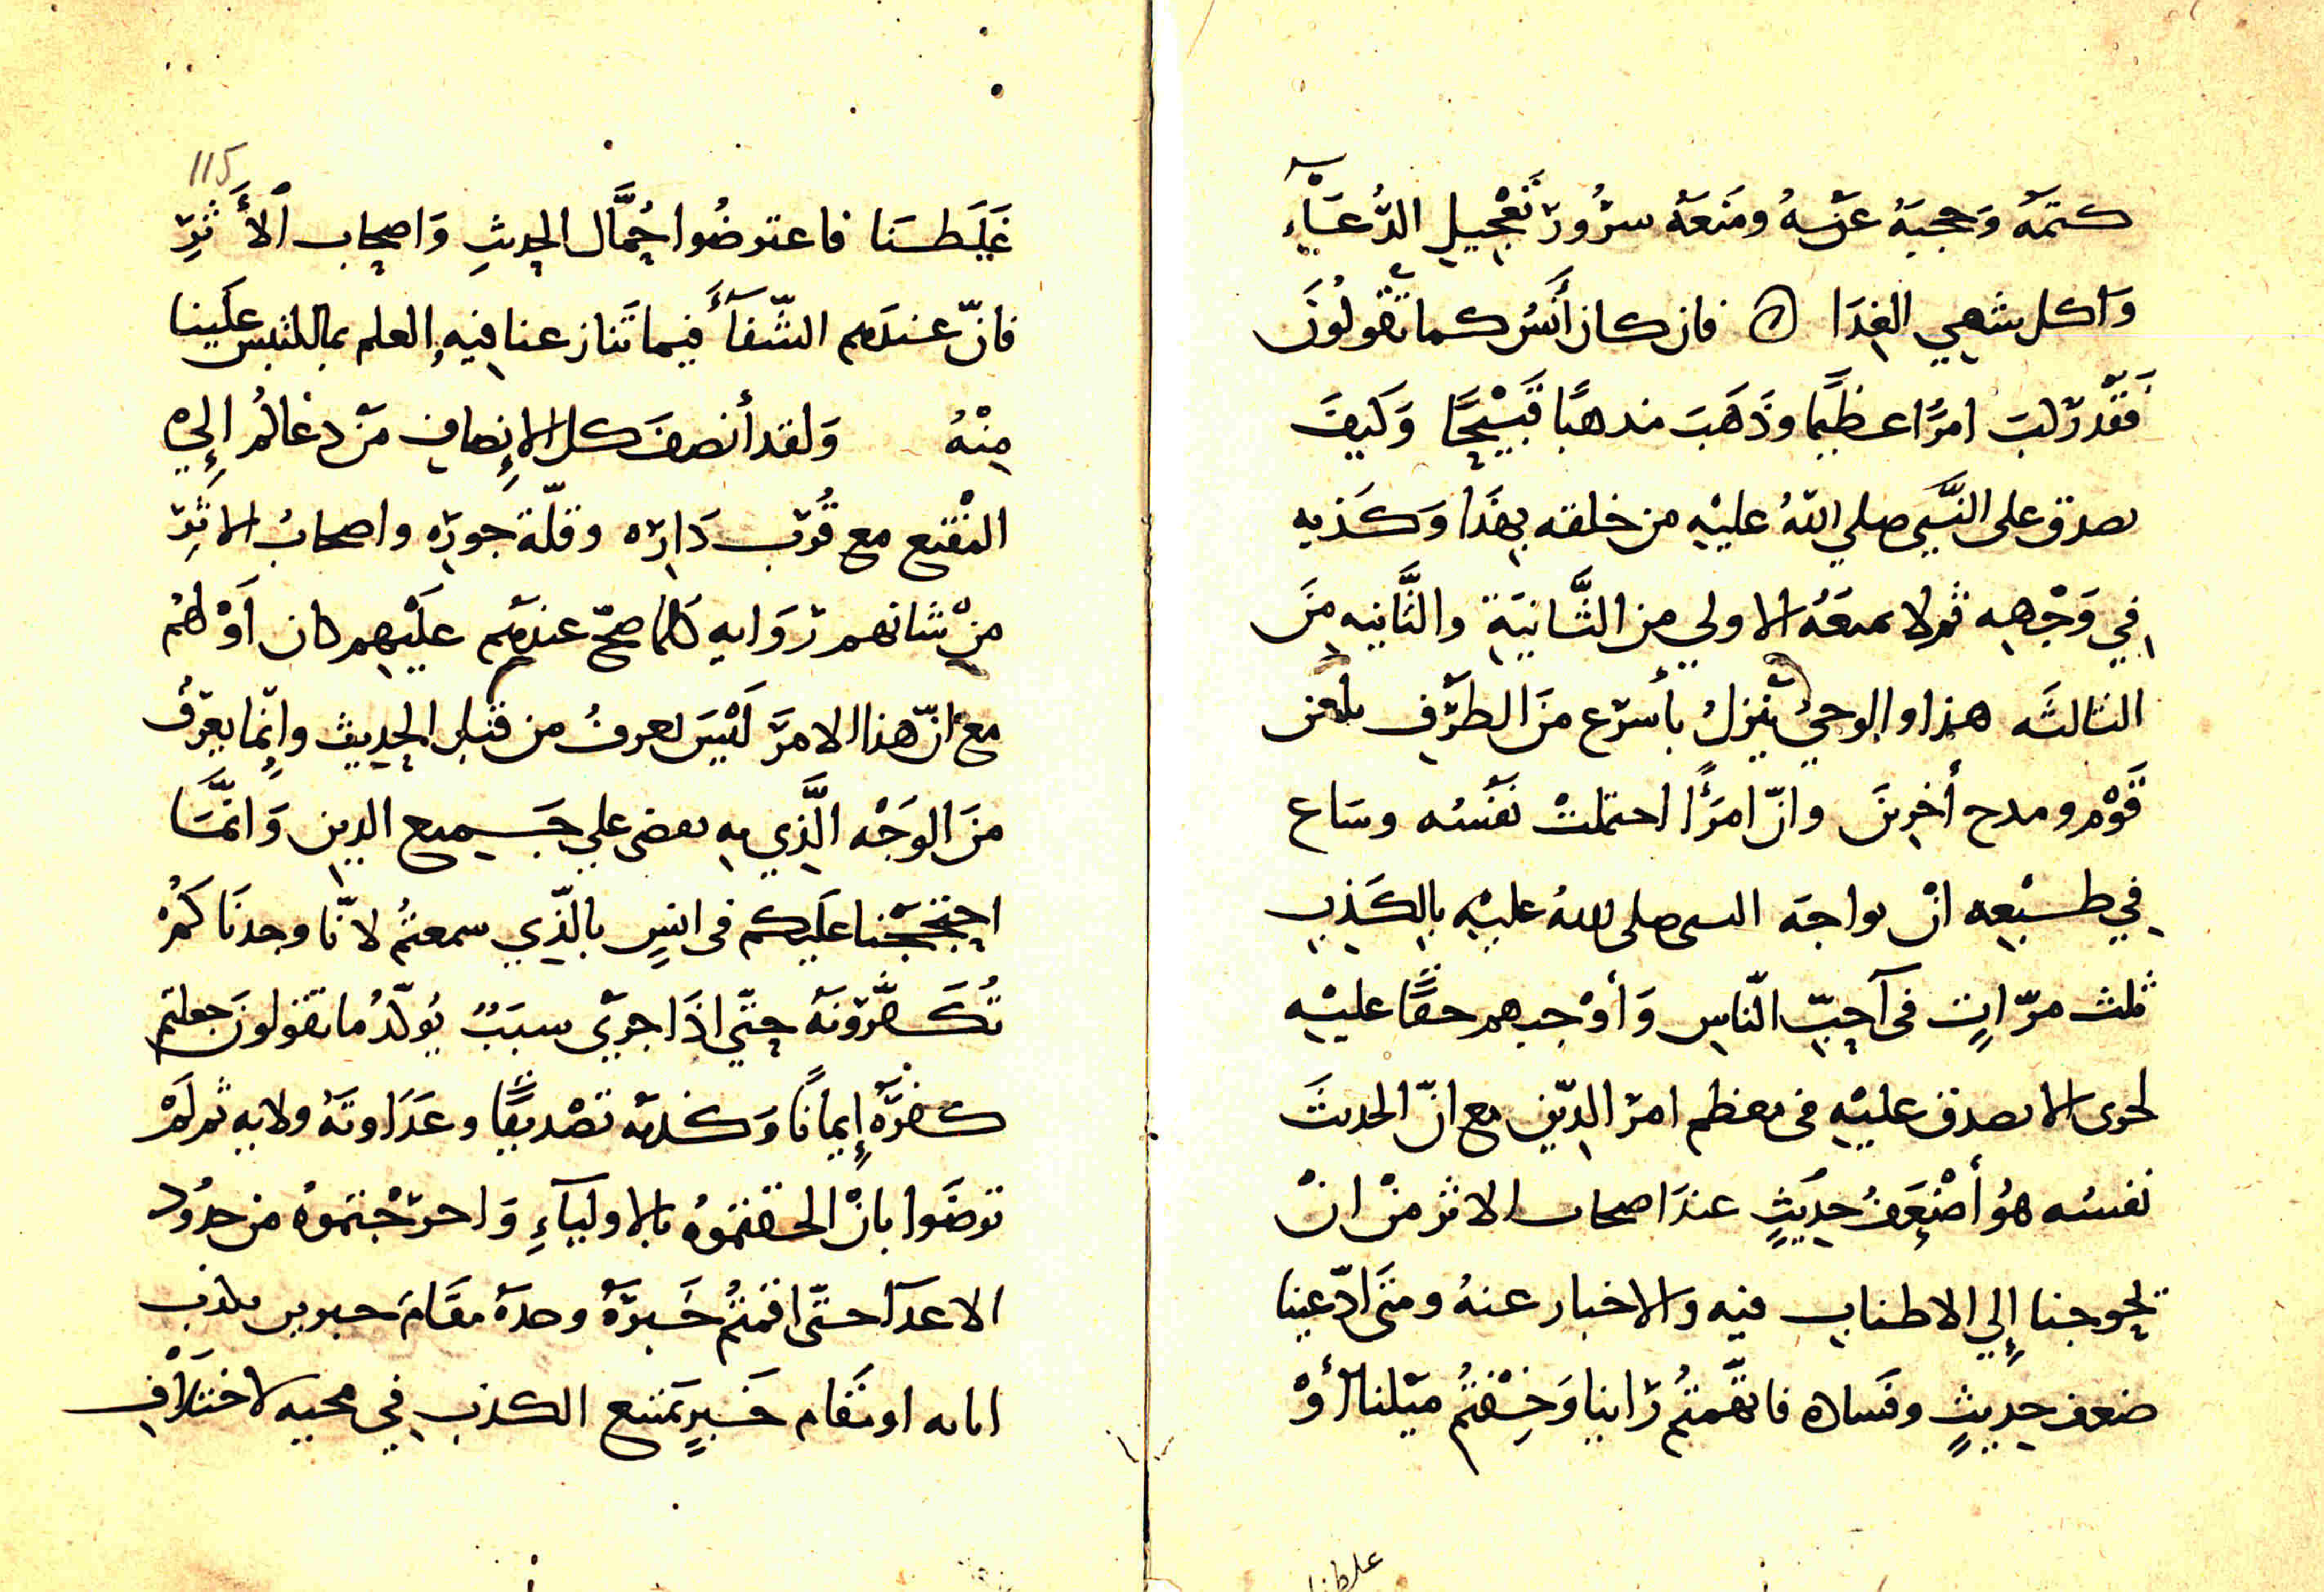 كتمَهُ وَحجبَهُ عَن سهُ ومَنعَهُ سرُورَ تَعْجيلِ الدُّعَاءِ
وَاكل شهي الغِدَا ۞ فان كان أَنَسٌ كما تقُولُونَ
فَقَدْ ركبَ امرًا عظيمًا وذَهَبَ مذهبًا قَبيْحًا وَكيفَ
يصدق على النَّبيِّ صلي اللهُ عليْهِ من خلقته بهَذَا وَكَذبه
في وَجْهِهِ ثم لا تمنعَهُ الاولي من الثَّانيَةِ والثَّانيه مِنَ
الثالثَه هذا والوحيُ يَنزلُ بأَسرَع منَ الطرْفِ بلعن
قَوْمٍ ومدح أَخرينَ وانّ امرَأً احتملتْ نَفْسُه وسَاع
في طبْعِه انْ يواجهَ النبي صلى اللهُ عليْهِ بالكَذِبِ
ثلث مرّاتٍ في أحبّ النّاسِ وَأوْجبهم حقًّا عليْهِ
لحرى الا يصدق عليْهِ في معظم امر الدّين مع انّ الحديثَ
نفسُه هُو أضْعَفُ حديْثٍ عندَ اصحاب الاثر منْ انْ
تحوجنا إِلي الاطناب فيه والاخبار عنهُ ومتَى ادّعينا
ضعف حديثٍ وفَساده فاتَّهمتُم رَاينا وَخِفْتُم ميْلنا أوْ
غَلَطنا
غَلَطنَا فاعترضُوا حُمَّال الحديثِ وَاصحاب الأَثَرِ
فانّ عندَهم الشّفَآءَ فيما تَنازعنا فيه والعلم بما التبس علَينا
مِنْهُ وَلقد أنصفَ كل الإنصافِ مَنْ دعاكُم إِليَ
المُقْنِع مع قُرْب دَارِه وقلّة جورِه واصحابُ الاثرِ
مِنْ شانهم رَوَايه كلما صحّ عندهُم علَيْهم كان اَوْ لهُم
مع انّ هذا الامرَ لَيْسَ يعرفُ من قبل الحديث وإنّما يعرَفُ
منَ الوَجْه الَّذي به يقضى علي جَميع الدين وَانمَّا
احتججْنا علَيكم في انسٍ بالّذي سمعتُم لانّا وجدنَاكمُ
تُكَفّرُونَهُ حتّي اذَا جري سبَبٌ يُولّدُ ما تقولونَ جعلتم
كفرَهُ إيمانًا وَكذبَه تصْديقًا وعَدَاوتَهُ ولايه ثم لَمْ
ترضَوا بانْ الحقتمُوهُ بالاوليَآءِ وَاخرَجْتمَوهُ من حدُود
الاعدَآ حتّى اقمتُم خَبرَهُ وحدَهُ مقَامَ خبرين
امانه او مَقام خَبرٍ يَمتنع الكذب في مجيه لاختلَافِ
115